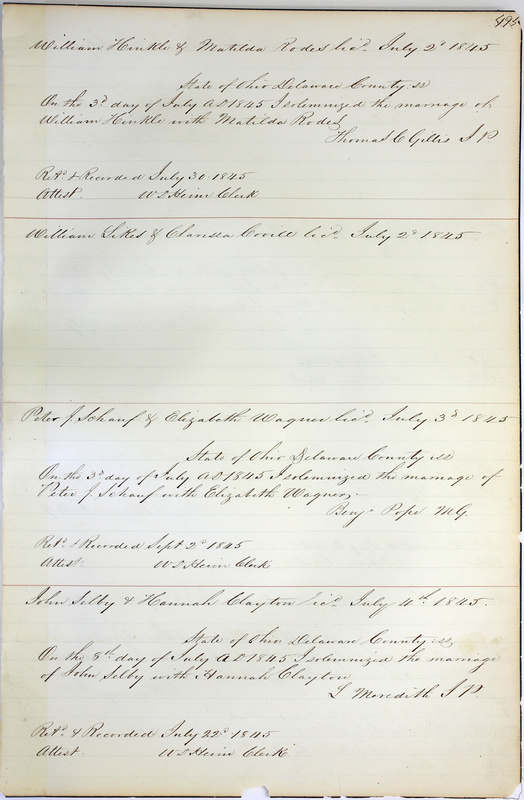 495
William Hinkle & Matilda Rodes licd July 2d 1845
State of Ohio Delaware County ss
On the 3d day of July AD 1845 I solemnized the marriage of
William Hinkle with Matilda Rodes
Thomas C Gillis J P
Retd & Recorded July 30 1845
Attest. W S Heim Clerk
William Sikes & Clarissa Covill licd July 2d 1845
Peter J. Schauf & Elizabeth Wagner licd July 3d 1845
State of Ohio Delaware County ss
On the 3d day of July AD 1845 I solemnized the marriage of
Peter J Schauf with Elizabeth Wagner,
Benja Pope M.G.
Retd & Recorded Sept 2d 1845
Attest. W S Heim Clerk
John Selby & Hannah Clayton licd July 4th 1845.
State of Ohio Delaware County ss
On the 8th day of July AD 1845 I solemnized the marriage
of John Selby with Hannah Clayton
L Meredith J P.
Retd & Recorded July 22d 1845
Attest. W S Heim Clerk